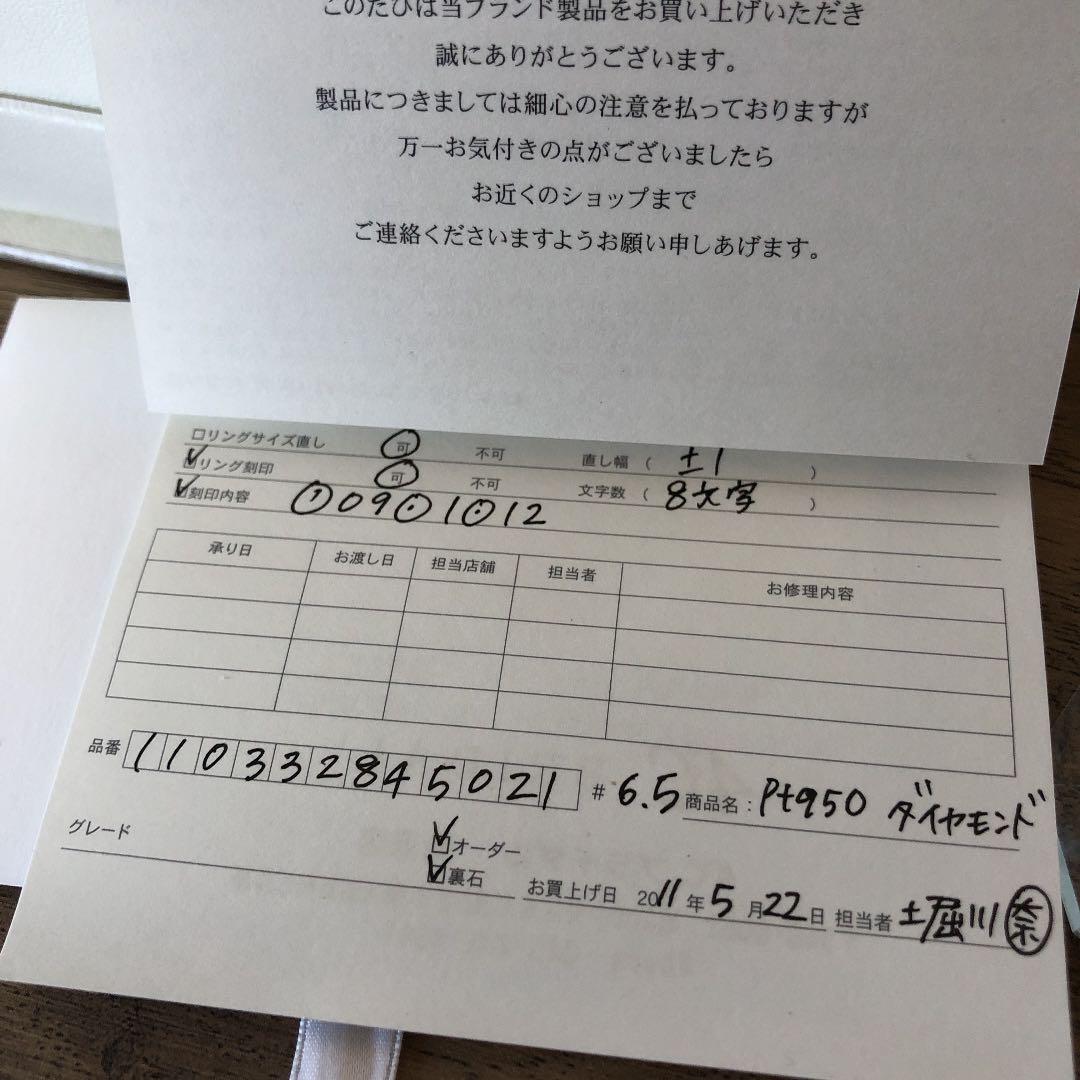 このたびは当ブランド製品をお買い上げいただき
誠にありがとうございます。
製品につきましては細心の注意を払っておりますが
万一お気付きの点がございましたら
お近くのショップまで
ご連絡くださいますようお願い申しあげます。
□リングサイズ直し 可 不可 直し幅 ( ±1 )
☑リング刻印 可 不可 文字数 ( 8文字 )
☑刻印内容 09 1 12
承り日 お渡し日 担当店舗 担当者 お修理内容
品番 110332845021 # 6.5 商品名: Pt950 ダイヤモンド
グレード ☑オーダー
☑裏石 お買上げ日 2011年5月22日 担当者 土堀川 奈